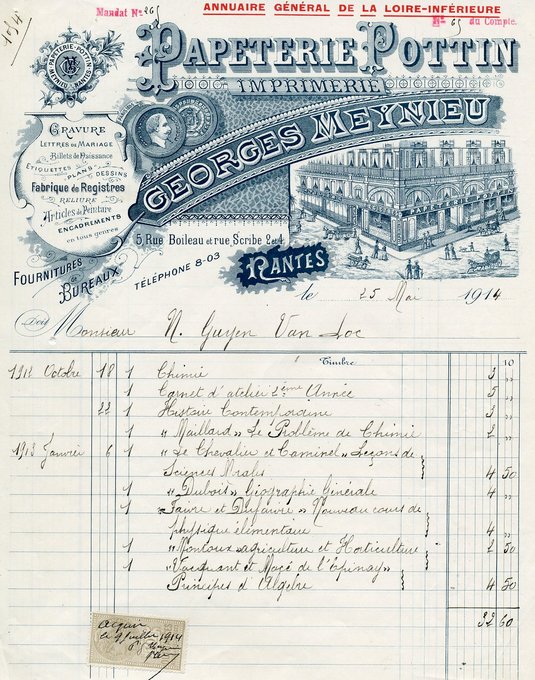 ANNUAIRE GÉNÉRAL DE LA LOIRE-INFÉRIEURE
Mandat Nº 265
Nº 65 du Compte.
PAPETERIE POTTIN
PAPETERIE POTTIN
G. MEYNIEU, NANTES
IMPRIMERIE
GEORGES MEYNIEU
GRAVURE
LETTRES DE MARIAGE
Billets de Naissance
ETIQUETTES
PLANS
DESSINS
Fabrique de Registres
RELIURE
Articles de Peinture
ENCADREMENTS
en tous genres
FOURNITURES
de
BUREAUX
5 Rue Boileau et rue Scribe 2 et 4
TÉLÉPHONE 8-03
NANTES
le 25 Mai 1914
Doit Monsieur N. Guyen Van Loc
Timbre 10
1912 Octobre 18 1 Chimie 3 "
1 Carnet d'atelier 2ème Année 5 "
22 1 Histoire Contemporaine 3 "
1 " Maillard " Le Problème de Chimie 2 "
1913 Janvier 6 1 " Le Chevalier et Caminel " Leçons de
Sciences Nrales 4 50
1 " Dubois " Géographie Générale 4 "
1 " Faivre et Dufaivre " Nouveau cours de
physique élémentaire 4 "
1 " Montoux agriculture et Horticulture 2 50
1 " Vacquant et Macé de l'Épinay "
Principes d'Algèbre 4 50
32 60
Acquis
le 9 Juillet 1914